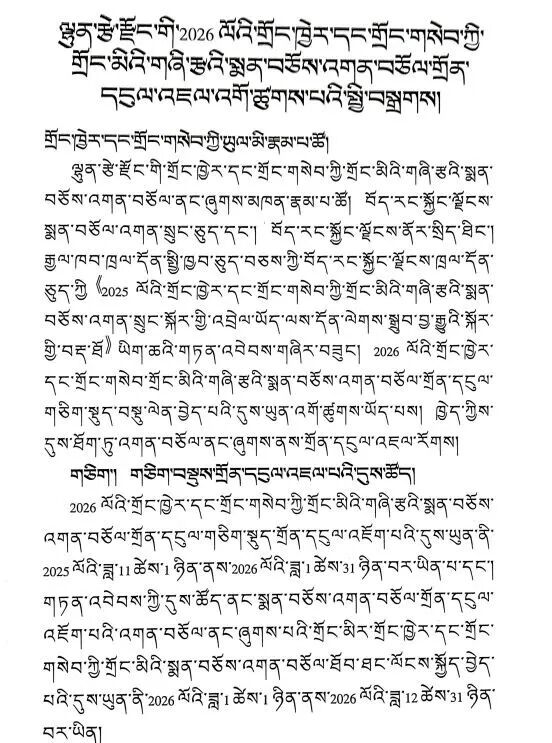 ལྷུན་རྩེ་རྫོང་གི་2026 ལོའི་གྲོང་ཁྱེར་དང་གྲོང་གསེབ་ཀྱི་
གྲོང་མིའི་གཞི་རྩའི་སྨན་བཅོས་འགན་བཅོལ་གྲོན་
དངུལ་འཇལ་འགོ་ཚུགས་པའི་སྤྱི་བསྒྲགས།
གྲོང་ཁྱེར་དང་གྲོང་གསེབ་ཀྱི་ཡུལ་མི་རྣམ་པ་ཚོ།
ལྷུན་རྩེ་རྫོང་གི་གྲོང་ཁྱེར་དང་གྲོང་གསེབ་ཀྱི་གྲོང་མིའི་གཞི་རྩའི་སྨན་
བཅོས་འགན་བཅོལ་ནང་ཞུགས་མཁན་རྣམ་པ་ཚོ། བོད་རང་སྐྱོང་ལྗོངས་
སྨན་བཅོལ་འགན་སྲུང་ཅུད་དང་། བོད་རང་སྐྱོང་ལྗོངས་ནོར་སྲིད་ཐིང་།
རྒྱལ་ཁབ་ཁྲལ་དོན་སྤྱི་ཁྱབ་ཅུད་བཅས་ཀྱི་བོད་རང་སྐྱོང་ལྗོངས་ཁྲལ་དོན་
ཅུད་ཀྱི 《2025 ལོའི་གྲོང་ཁྱེར་དང་གྲོང་གསེབ་ཀྱི་གྲོང་མིའི་གཞི་རྩའི་སྨན་
བཅོས་འགན་སྲུང་སྐོར་གྱི་འབྲེལ་ཡོད་ལས་དོན་ལེགས་སྒྲུབ་བྱ་རྒྱུའི་སྐོར་
གྱི་བརྡ་ཐོ》 ཡིག་ཆའི་གཏན་འབེབས་གཞིར་བཟུང། 2026 ལོའི་གྲོང་ཁྱེར་
དང་གྲོང་གསེབ་གྲོང་མིའི་གཞི་རྩའི་སྨན་བཅོས་འགན་བཅོལ་གྲོན་དངུལ་
གཅིག་སྡུད་བསྡུ་ལེན་བྱེད་པའི་དུས་ཡུན་འགོ་ཚུགས་ཡོད་པས། ཁྱེད་ཀྱིས་
དུས་ཐོག་ཏུ་འགན་བཅོལ་ནང་ཞུགས་ནས་གྲོན་དངུལ་འཇལ་རོགས།
གཅིག། གཅིག་བསྡུས་གྲོན་དངུལ་འཇལ་པའི་དུས་ཚོད།
2026 ལོའི་གྲོང་ཁྱེར་དང་གྲོང་གསེབ་ཀྱི་གྲོང་མིའི་གཞི་རྩའི་སྨན་བཅོས་
འགན་བཅོལ་གྲོན་དངུལ་གཅིག་སྡུད་གྲོན་དངུལ་འཇོག་པའི་དུས་ཡུན་ནི་
2025 ལོའི་ཟླ་11 ཚེས་1 ཉིན་ནས་2026 ལོའི་ཟླ་1 ཚེས་31 ཉིན་བར་ཡིན་པ་དང་།
གཏན་འབེབས་ཀྱི་དུས་ཚོད་ནང་སྨན་བཅོས་འགན་བཅོལ་གྲོན་དངུལ་
འཇོག་པའི་འགན་བཅོལ་ནང་ཞུགས་པའི་གྲོང་མིར་གྲོང་ཁྱེར་དང་གྲོང་
གསེབ་ཀྱི་གྲོང་མིའི་སྨན་བཅོས་འགན་བཅོལ་ཐོབ་ཐང་ལོངས་སྤྱོད་བྱེད་
པའི་དུས་ཡུན་ནི་2026 ལོའི་ཟླ་1 ཚེས་1 ཉིན་ནས་2026 ལོའི་ཟླ་12 ཚེས་31 ཉིན་
བར་ཡིན།